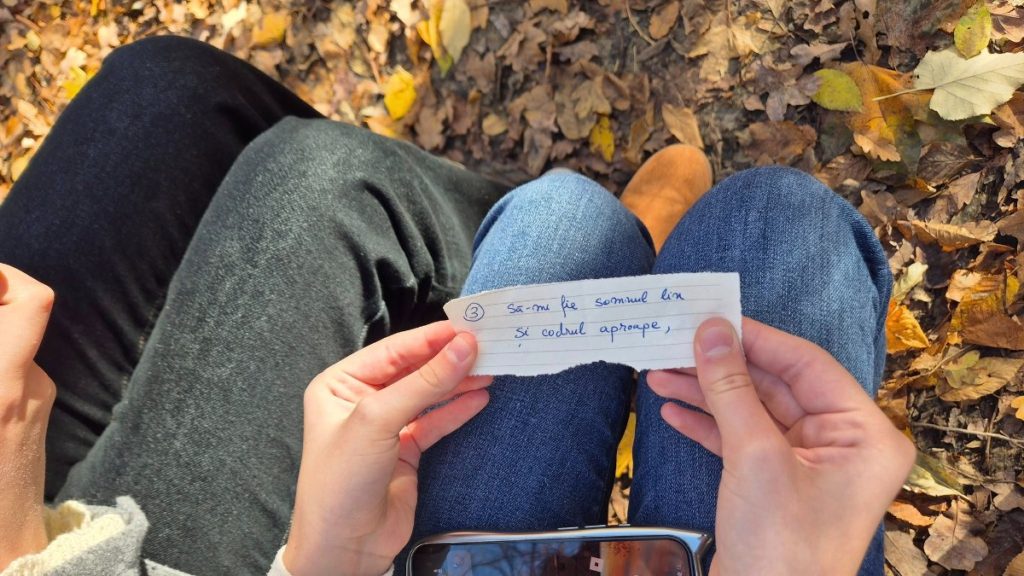 ③ Să-mi fie somnul lin
Și codrul aproape,